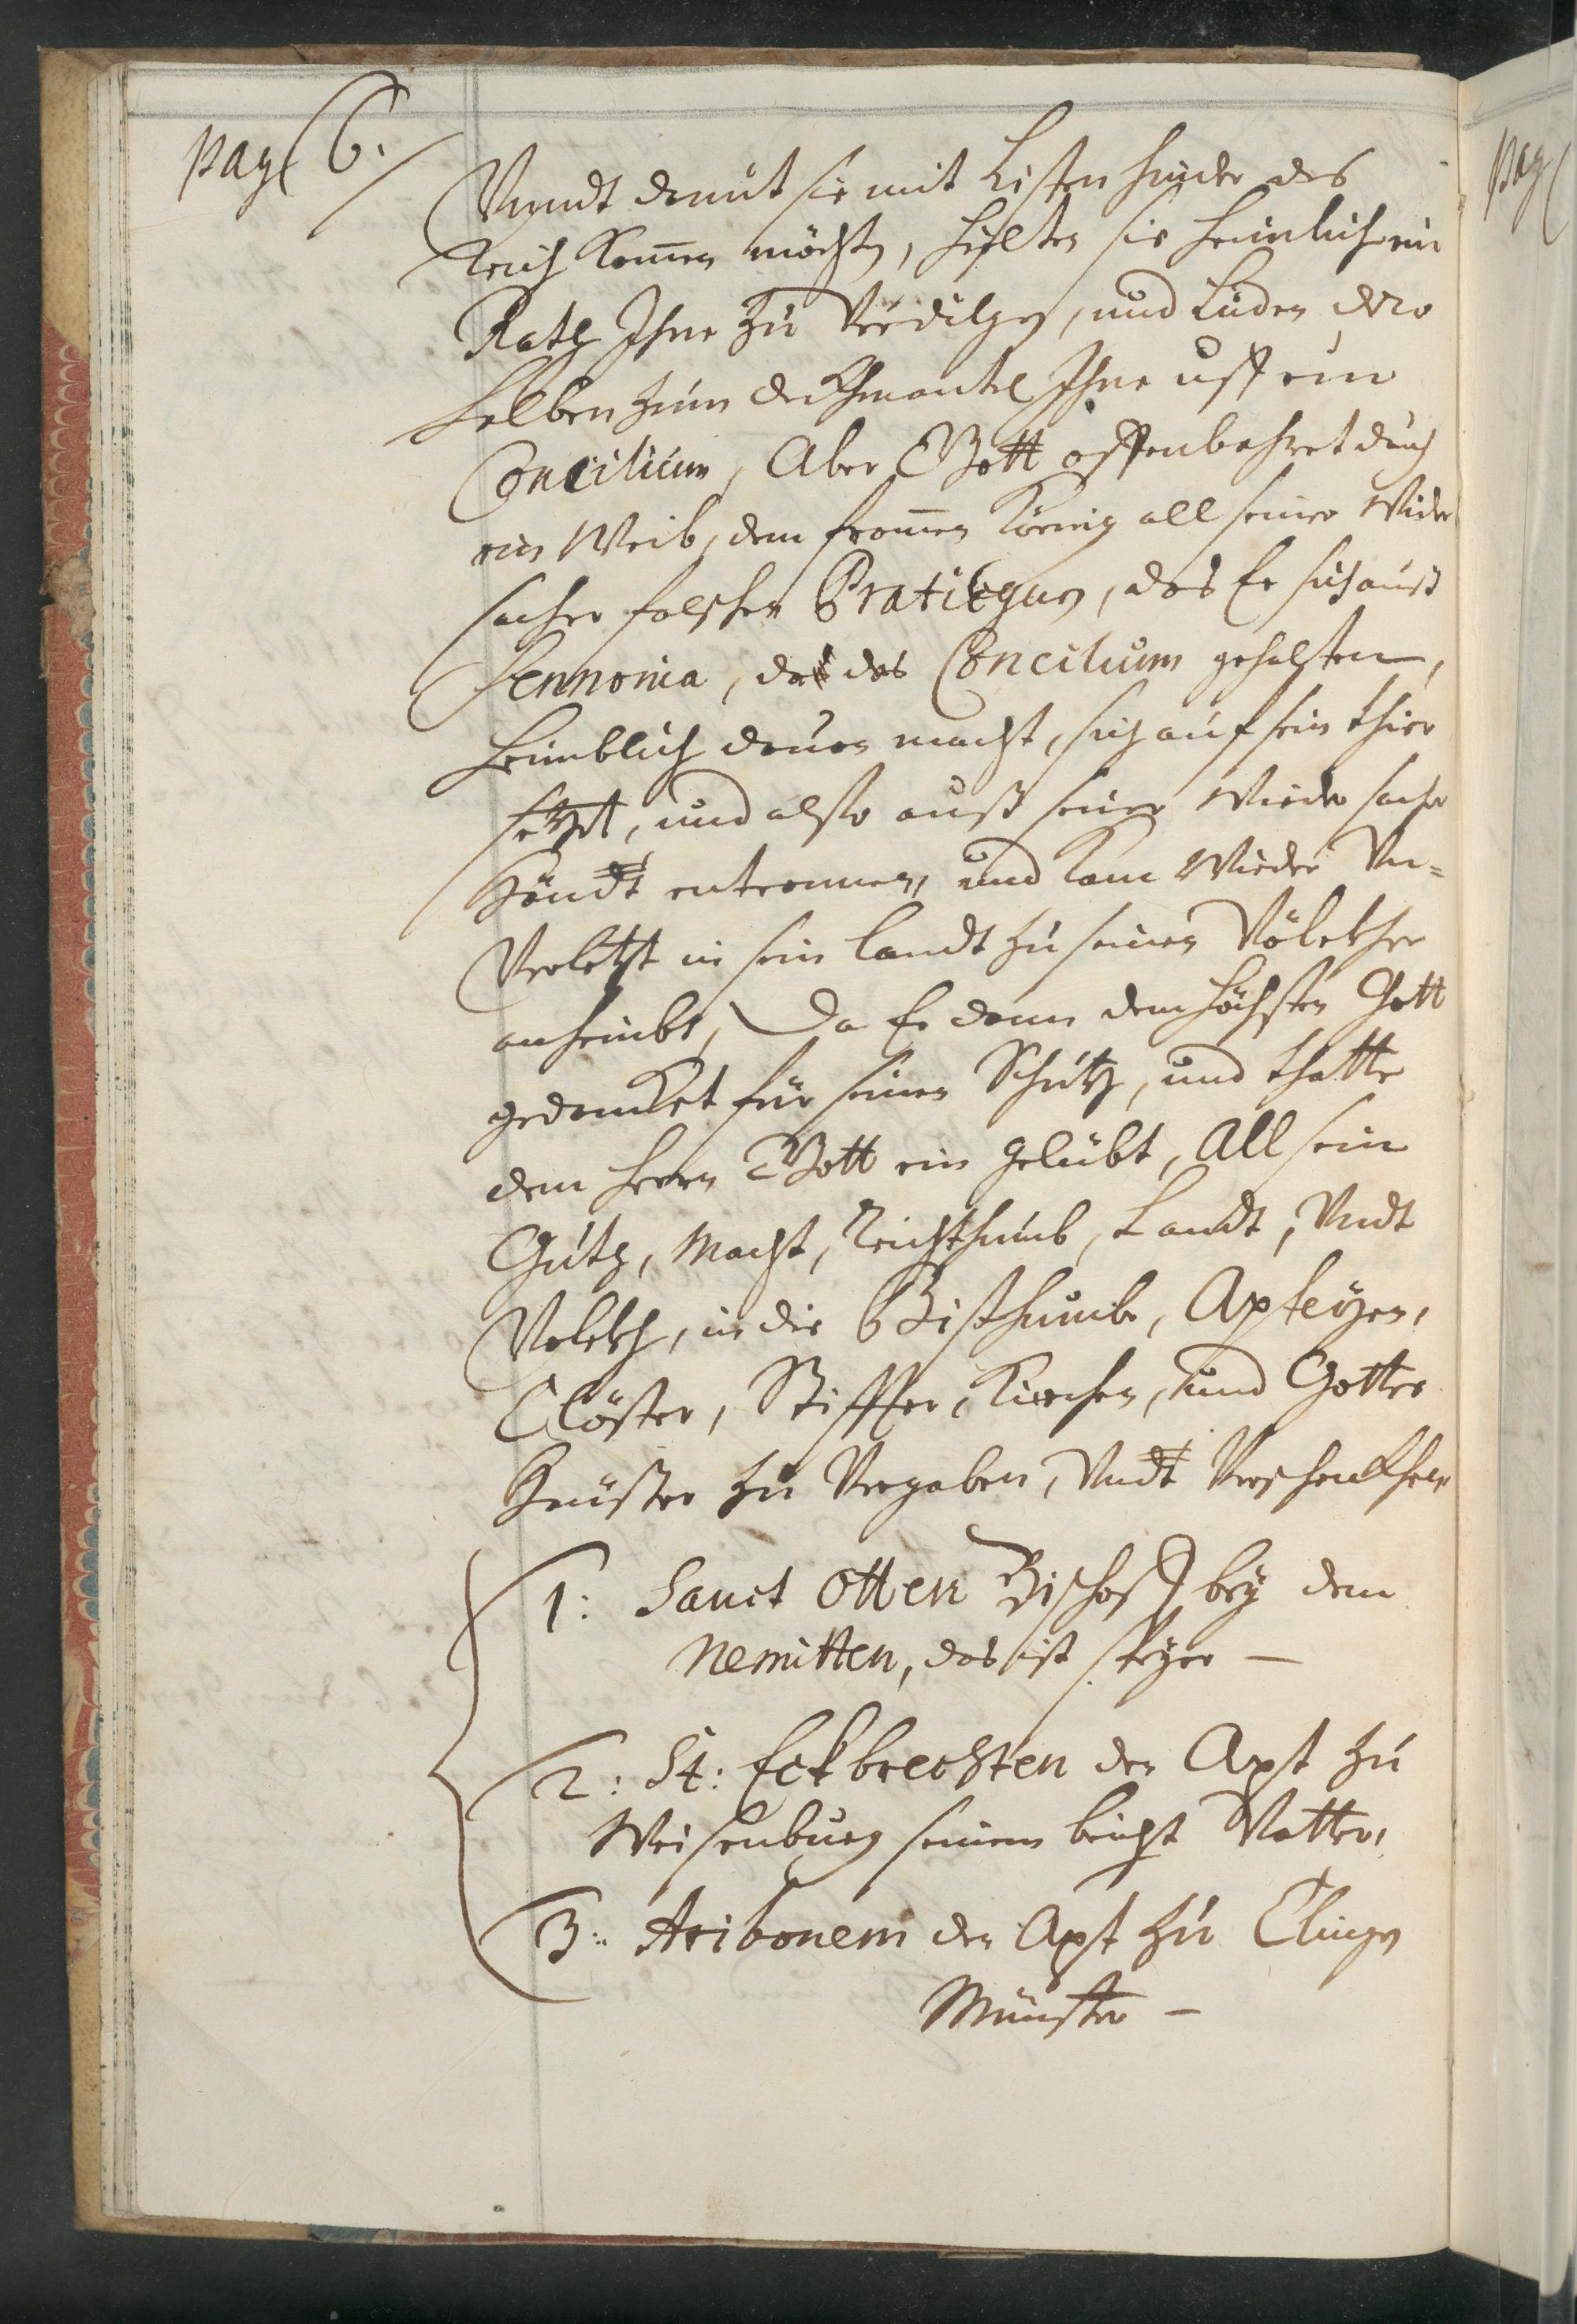 pag 6.
Vnndt damit sie mit Listen hinder das
Reich kom̄en möchtn, hielten sie heimlich ein
Rath Ihne zu Verdilgen, und Luden dero
selben zum deckhmantel Ihne uff ein
Concilium, Aber Gott offenbahret durch
ein Weib, dem from̄en König all seiner Wider
sacher falschen Pratickgen, das Er sich auß
Pennonia, da das Concilium gehalten,
heimblich davon macht, sich auf sein thier
setzet, und also auß seiner Wieder sacher
händt entronnen, und kam Wieder Vn=
Verletzt in sein landt zu seinen Völckher
anheimbs, Da Er dann dem höchsten Gott
gedanket für seinen Schutz, und thatte
dem herrn Gott ein gelübt, All sein
Guth, Macht, Reichthumb, Landt, Vndt
Volckh, in die Bisthumb, Apteyen,
Clöster, Stiffter, Kirchen, und Gottes
heüser zu Vergaben, Vndt Verschenckhen
1: Sanct Otten Bischoff bey dem
Nemitten, das ist speyer –
2: St: Eckbrechten der Apt zu
Weisenburg seinem beicht Vatter,
3: Aribonem der Apt zu Clingen
Münster –
pag